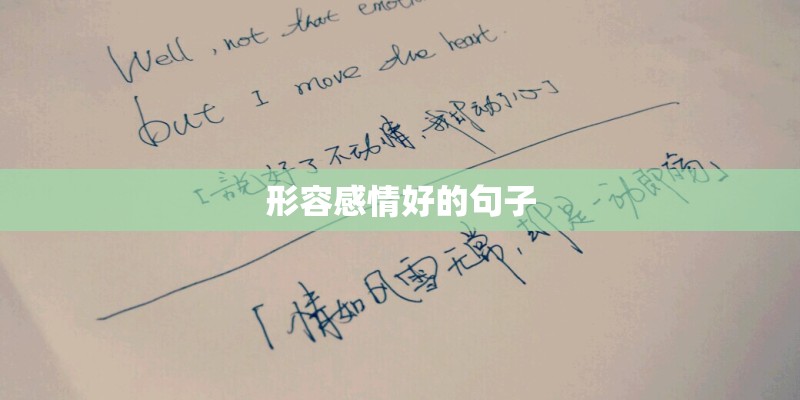 Well , not that
but I move the heart.
「說好了不动情，我却动了心」
形容感情好的句子
「情如风雪无常，却是一动即殇」